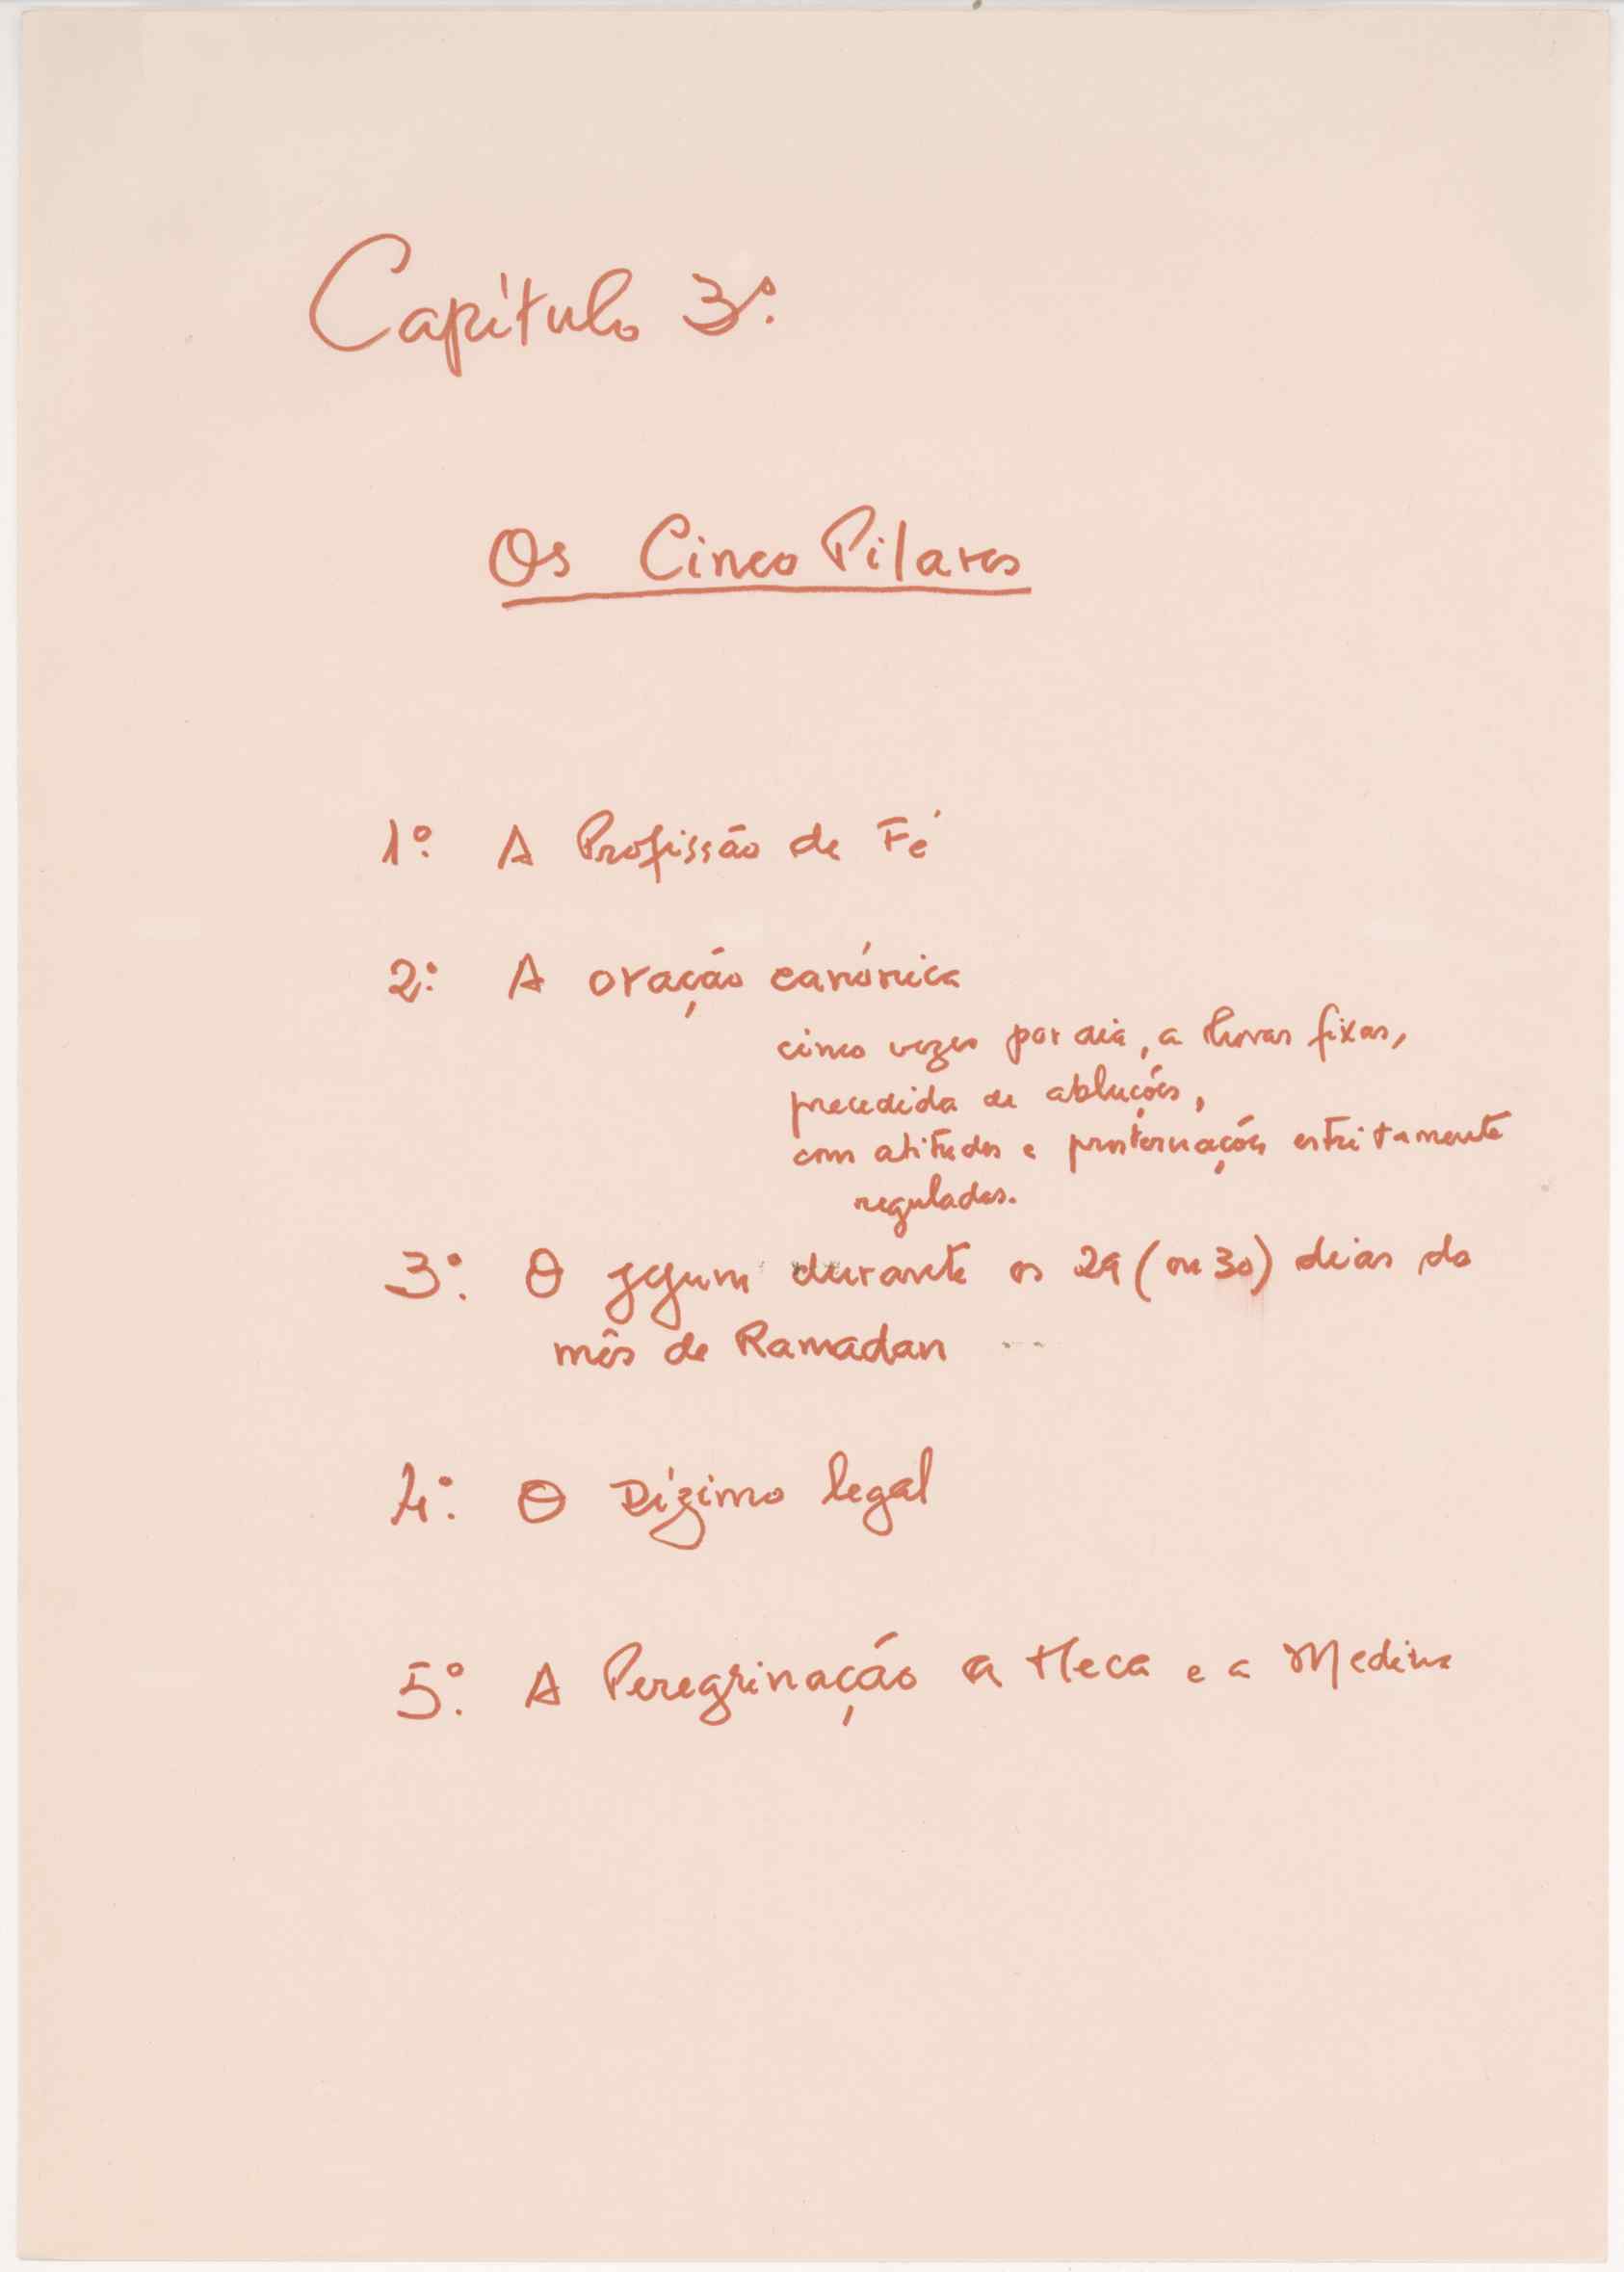 Capítulo 3º.
Os Cinco Pilares
1º. A Profissão de Fé
2º. A oração canónica
cinco vezes por dia, a horas fixas,
precedida de abluções,
com atitudes e prosternações estritamente
reguladas.
3º. O jejum durante os 29 (ou 30) dias do
mês de Ramadan
4º. O Dízimo legal
5º. A Peregrinação a Meca e a Medina